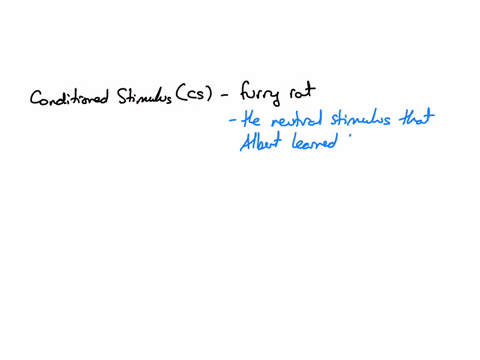 Conditioned Stimulus (CS) - furry rat
- the neutral stimulus that
Albert learned